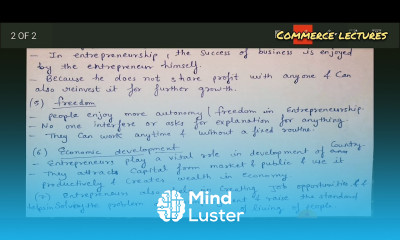 2 OF 2
COMMERCE LECTURES
- In entrepreneurship, the success of business is enjoyed
by the entrepreneur himself.
- Because he does not share profit with anyone & can
also reinvest it for further growth.
(5) freedom
- people enjoy more autonomy / freedom in Entrepreneurship.
- No one interfere or asks for explanation for anything
- They can work anytime & without a fixed routine.
(6) Economic development
- Entrepreneurs play a vital role in development of Country
- They attracts Capital form market & public & use it
productively & creates wealth in economy
(7) Entrepreneur also in creating job opportunities &
the problem & raise the standard
of living of people.
Mind
Luster